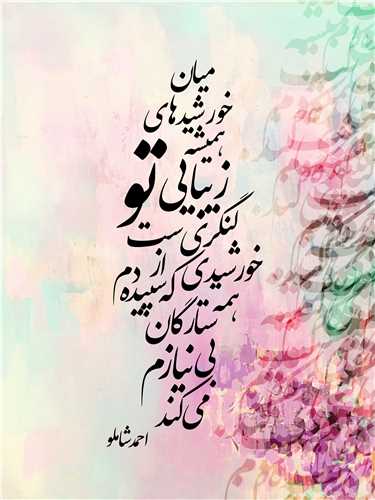 میان
خورشیدهای
همیشه
زیبایی تو
لنگری ست
خورشیدی که
از سپیده دم
همه ستارگان
بی نیازم
می کند
احمد شاملو